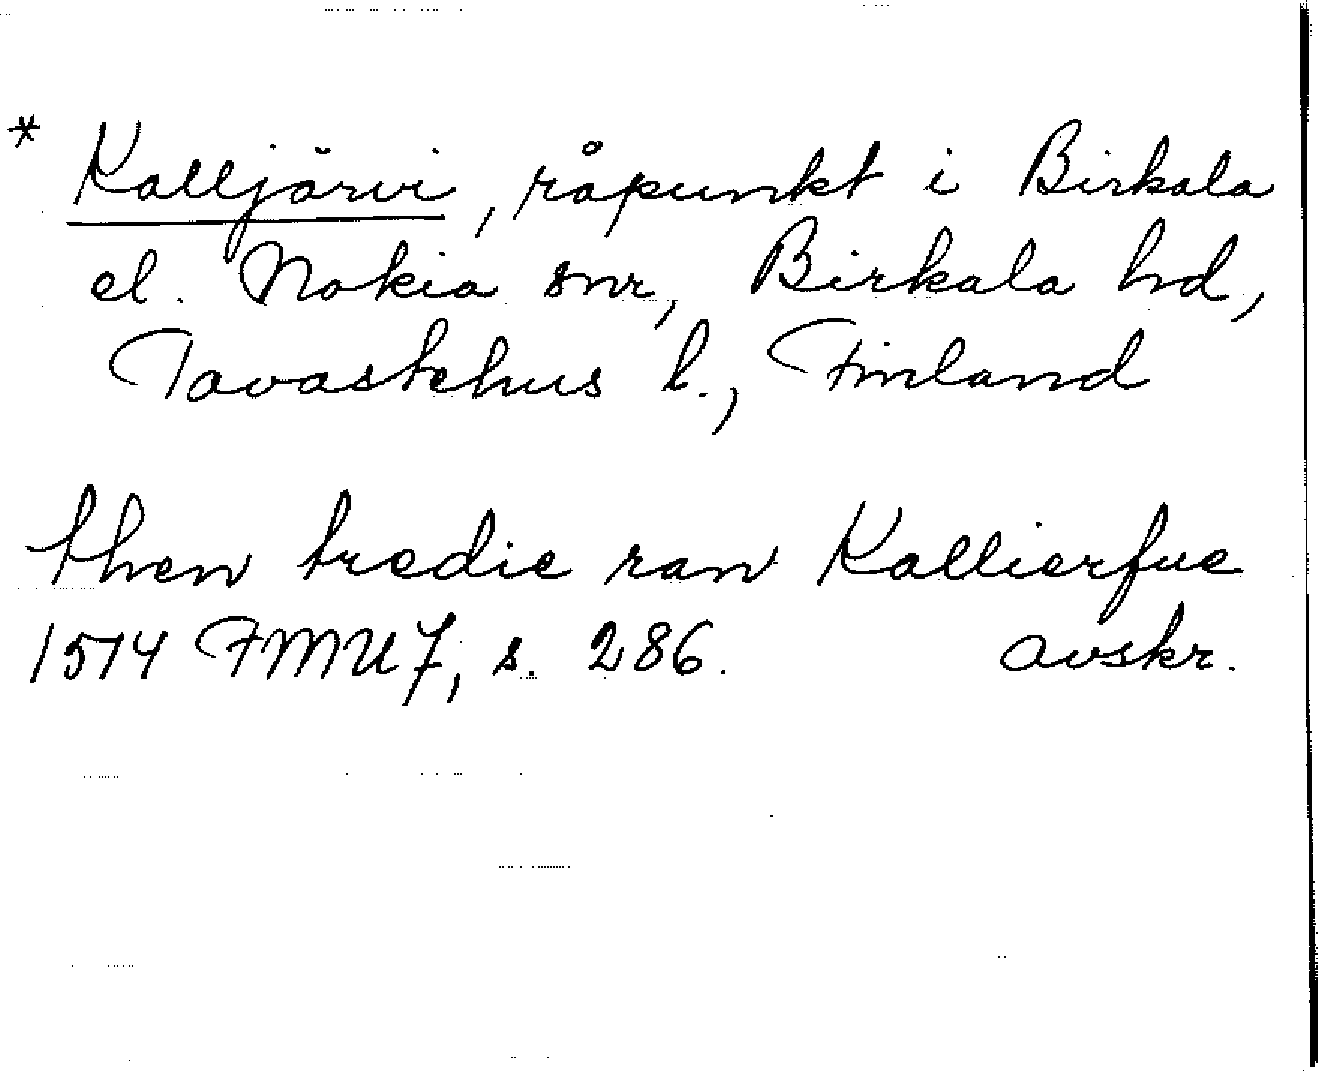 * Kalljärvi, råpunkt i Birkala
el. Nokia snr, Birkala hd,
Tavastehus l., Finland
then tredie ran Kallierfue
1514 FMU 7, s. 286. avskr.